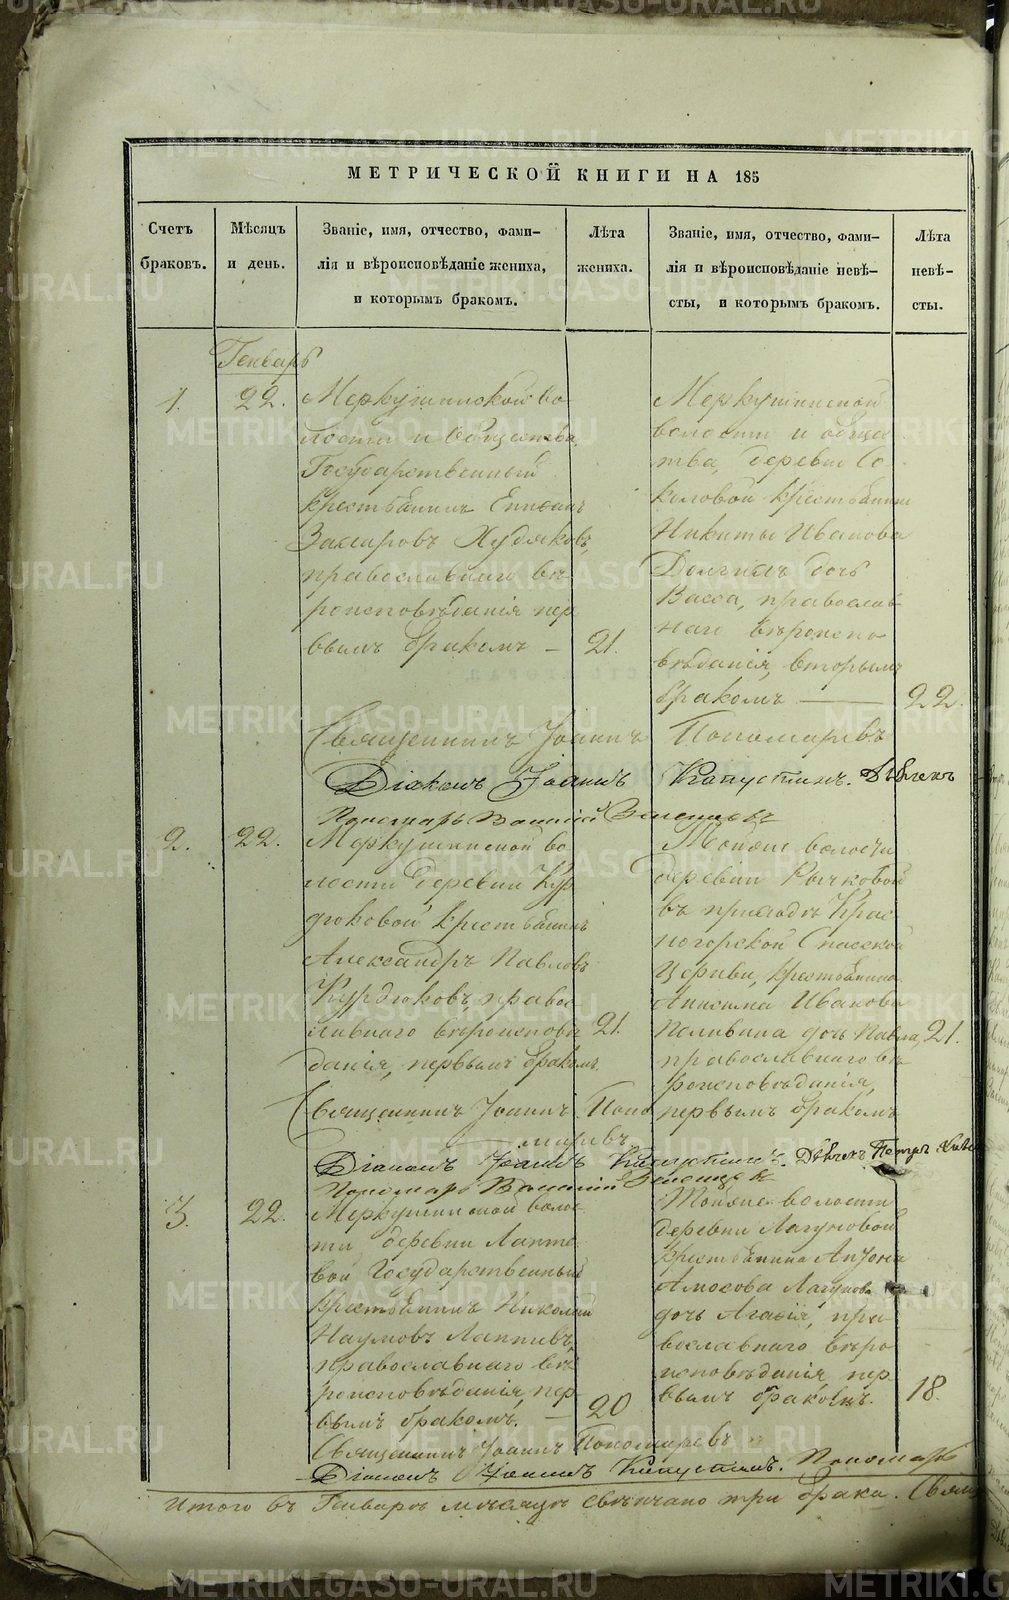 МЕТРИЧЕСКОЙ КНИГИ НА 185
Счетъ браковъ.
Мѣсяцъ и день.
Званіе, имя, отчество, фами-
лія и вѣроисповѣданіе жениха,
и которымъ бракомъ.
Лѣта
жениха.
Званіе, имя, отчество, фами-
лія и вѣроисповѣданіе невѣ-
сты, и которымъ бракомъ.
Лѣта
невѣ-
сты.
Генварь
1. 22.
Меркушинской во-
лости и общества,
Государственный
крестьянинъ Епифанъ
Захаровъ Худяковъ,
православнаго вѣ-
роисповѣданія пер
вымъ бракомъ — 21.
Меркушинской
волости и обще
тва, деревни Со
коловой крестьянина
Никиты Иванова
дочь
Васса, православ
наго вѣроиспо
вѣданія, вторымъ
бракомъ — 22.
Священникъ Іоаннъ Пономаревъ
Діаконъ Іоаннъ Капустинъ. Дьячекъ
Пономарь Василій
2. 22.
Меркушинской во
лости деревни Кур
дюковой крестьянинъ
Александръ Павловъ
Курдюковъ, правос
лавнаго вѣроисповѣ 21.
данія, первымъ бракомъ.
Тойже волости
деревни Рычковой
въ приходѣ Крас
ногорской Спасской
Церкви, крестьянина
Анисима Иванова
дочь Павла, 21.
православнаго вѣ
роисповѣданія,
первымъ бракомъ
Священникъ Іоаннъ Поно
маревъ
Діаконъ Іоаннъ Капустинъ. Дьячекъ Петръ
Пономарь Василій
3. 22.
Меркушинской волос
ти деревни Лапте
вой Государственный
крестьянинъ Николай
Наумовъ Лаптевъ,
православнаго вѣ
роисповѣданія, пер
вымъ бракомъ. — 20
Тойже волости
деревни Лагуновой
крестьянина Антона
Амосова Лагунова
дочь Агафія, пра
вославнаго вѣро
исповѣданія, пер
вымъ бракомъ. 18.
Священникъ Іоаннъ Пономаревъ
Діаконъ Іоаннъ Капустинъ. Пономарь
Итого въ Генварѣ мѣсяцѣ свѣнчано три брака.
METRIKI.GASO-URAL.RU